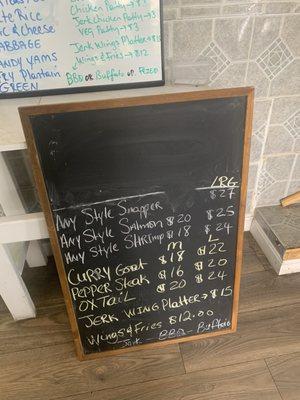 Chicken Patty →$3
Jerk Chicken Patty →$3
Veg Patty →$3
Jerk Wings Platter →$15
Wings & Fries →$12
BBQ or Buffalo or Fried
Rice
& Cheese
CABBAGE
CANDY YAMS
Fry Plantain
GREEN
LRG
Any Style Snapper $27
Any Style Salmon $20 $25
Any Style Shrimp $18 $24
M L
Curry Goat $18 $22
Pepper Steak $16 $20
OXTail $20 $24
Jerk Wing Platter → $15
Wings & Fries $12.00
Jerk - BBQ - Buffalo